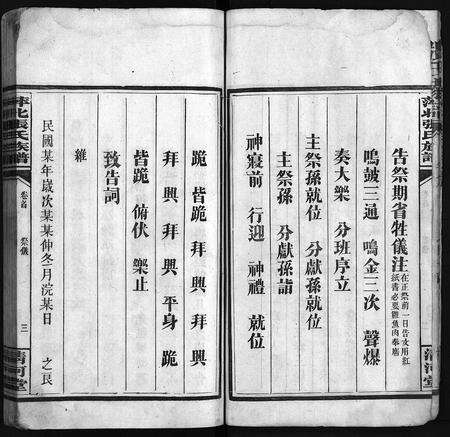 萍北張氏族譜
清河堂
告祭期省牲儀注 在正祭前一日告文用紅紙書必要雞魚肉奉應
鳴鼓三通 鳴金三次 聲爆
奏大樂 分班序立
主祭孫就位 分獻孫就位
主祭孫 分獻孫詣
神寢前 行迎 神禮 就位
跪 皆跪 拜 興 拜 興
拜 興 拜 興 平身 跪
皆跪 俯伏 樂止
致告詞
維
民國某年歲次某某仲冬月浣某日 之辰
萍北張氏族譜
卷首 祭儀 三
清河堂